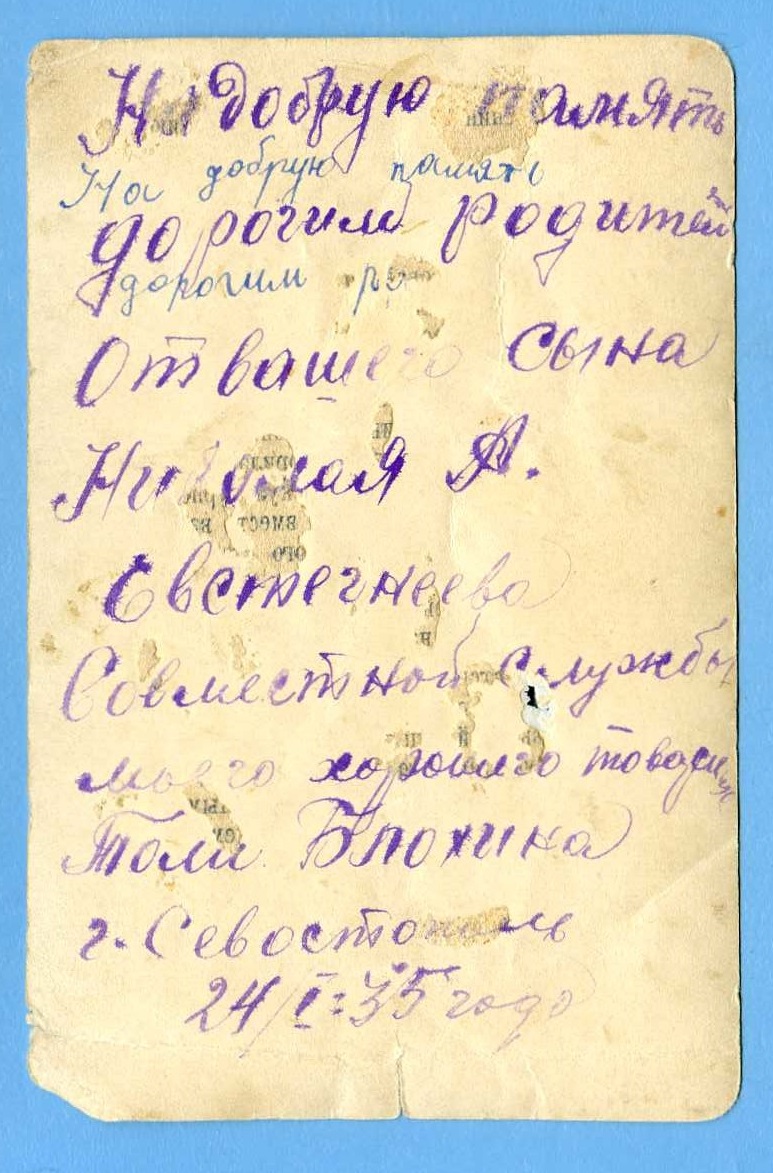 На добрую память
На добрую память
дорогим родителям
дорогим
От вашего сына
Николая А.
Евстегнеева
Совместной службы
моего хорошего товарища
Толи Блохина
г. Севостополь
24/I-35 года